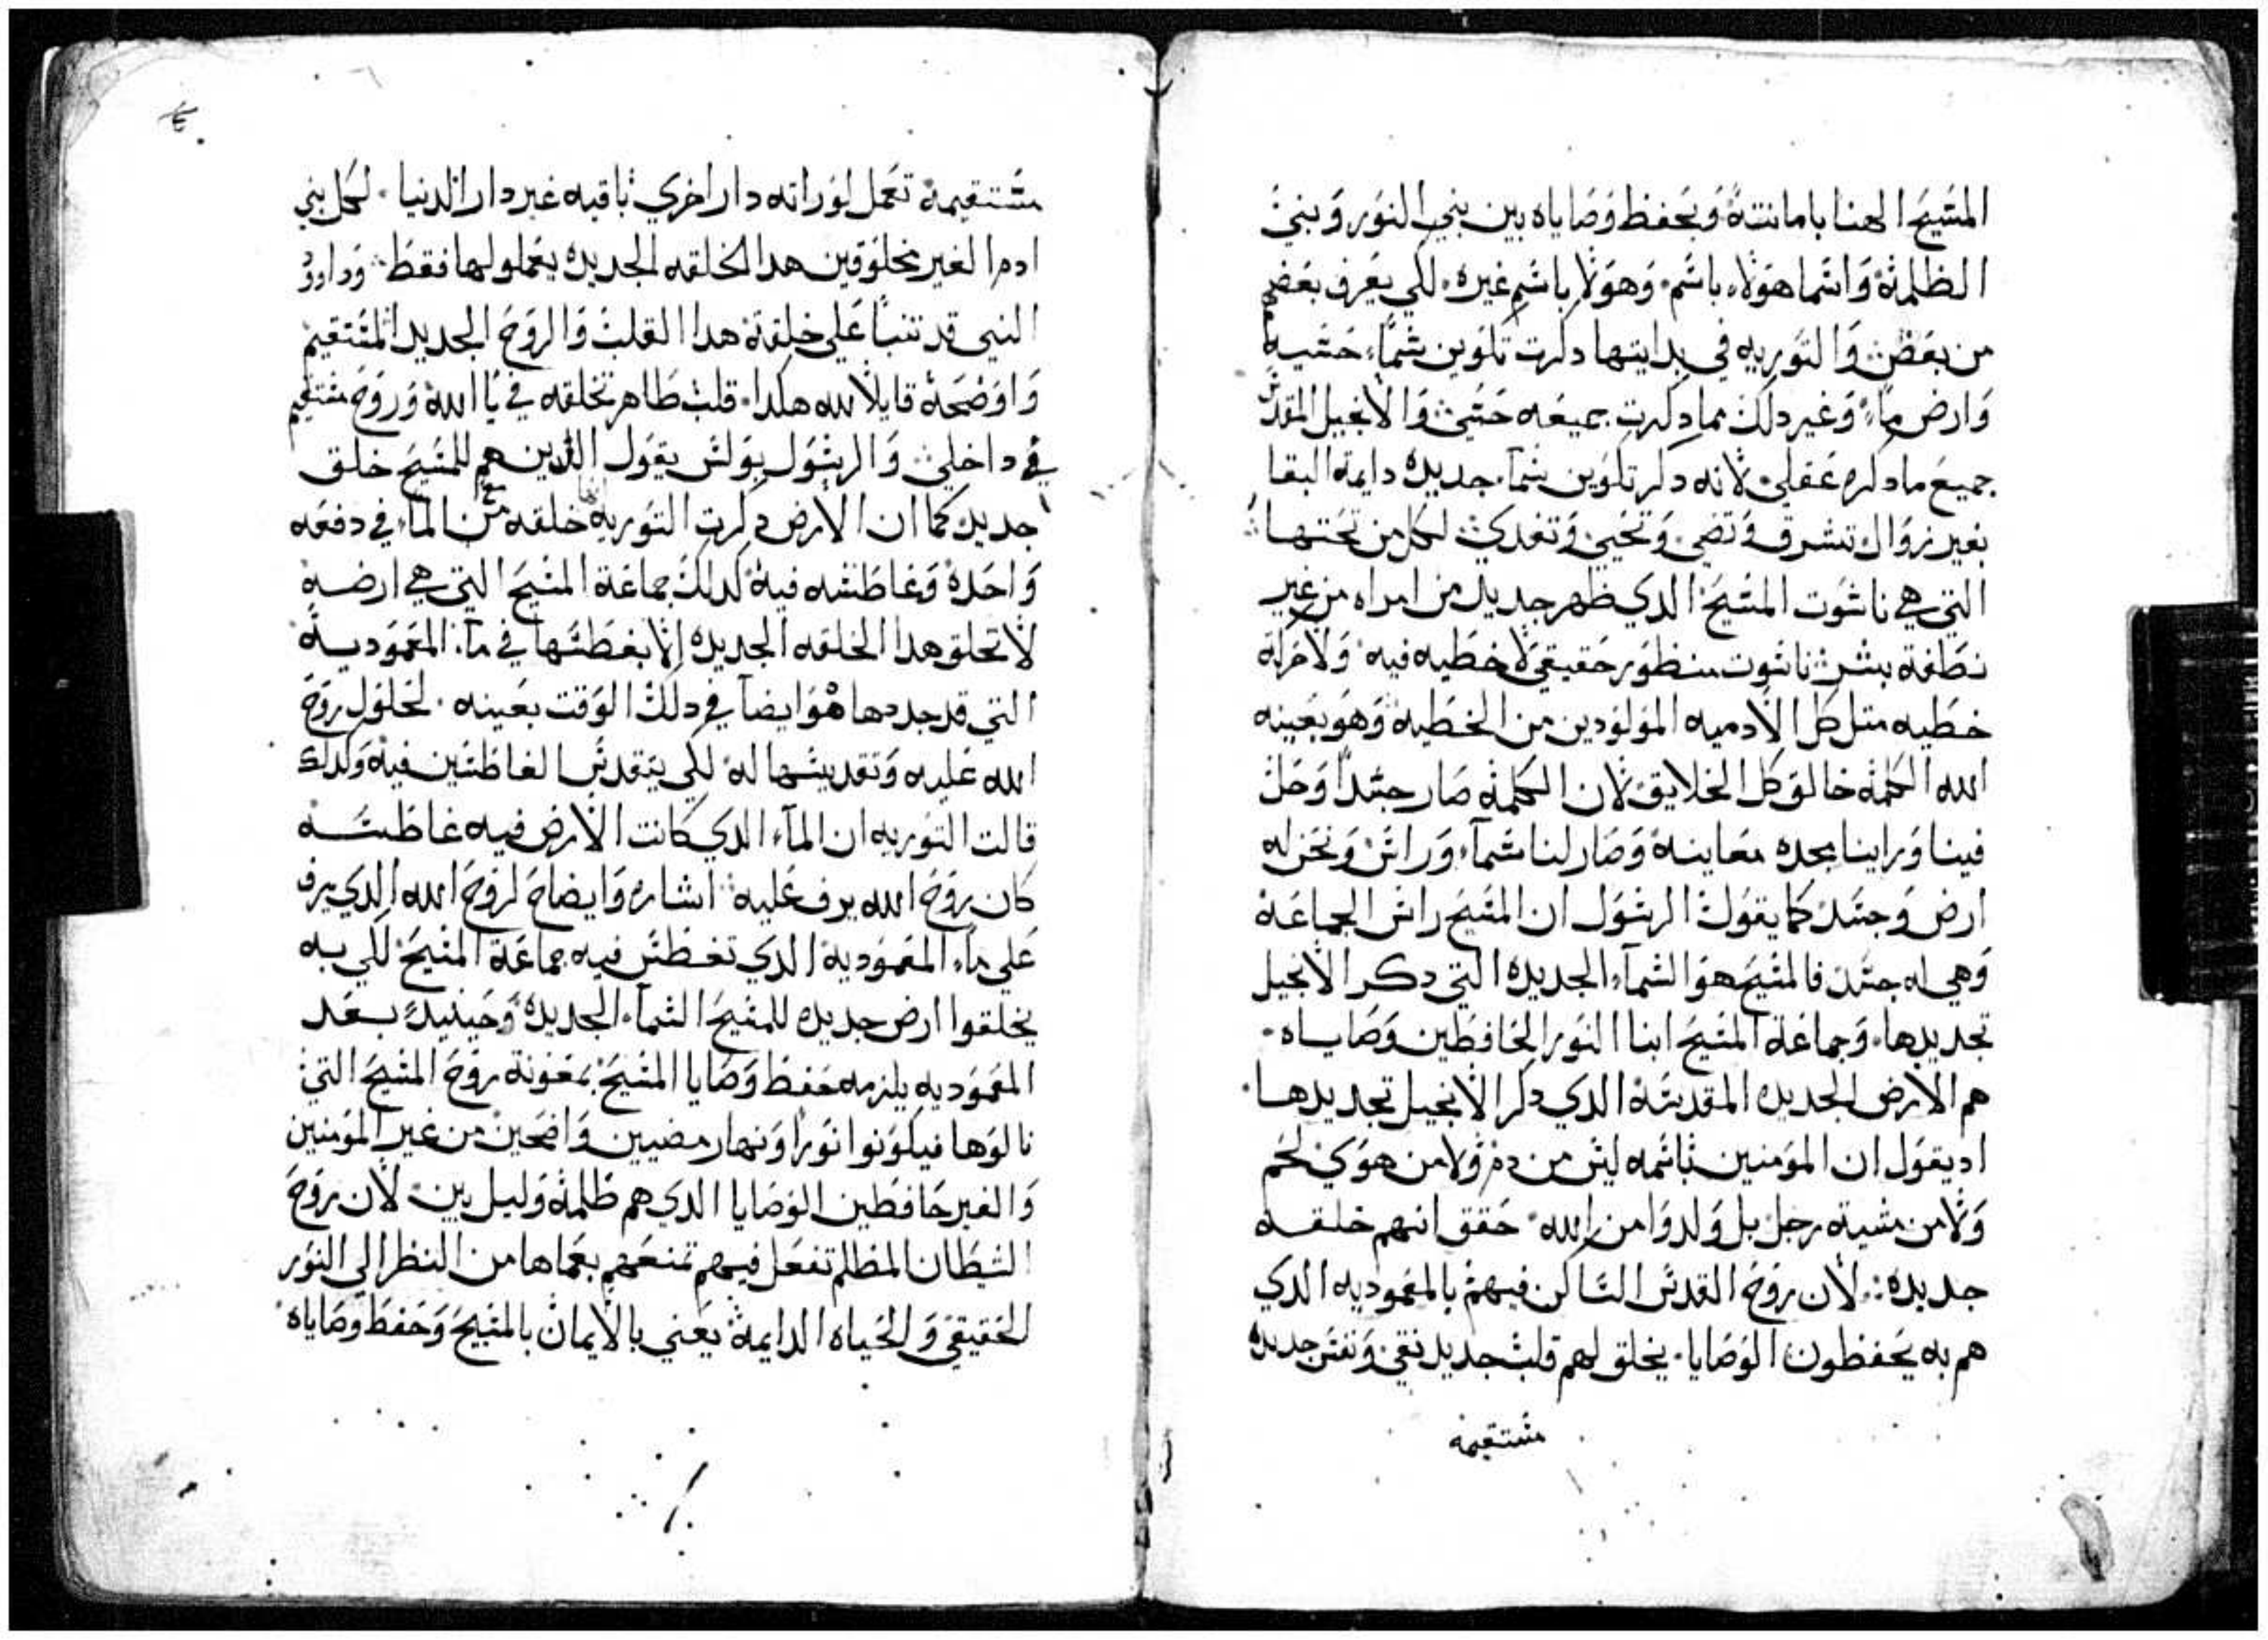 المسيح الهنا بامانته وبحفظ وصاياه بين بني النور وبني
الظلمة واسما هولاء باسم وهولا باسم غيره لكي يعرف بعضهم
من بعض والتوريه في بدايتها دكرت تكوين سماء حسيه
وارض وما وغير دلك مما دكرت جميعه حسي والانجيل المقدس
جميع ما دكره عقلي لانه دكر تكوين سمآ جديده دايمة البقا
بغير زوال تشرق وتضي وتحيي وتغدي لكل من تحتها
التي هي ناسوت المسيح الدي ظهر جديد من امراه من غير
نطفة بشر ناسوت منظور حقيقي لا خطيه فيه ولا حركة
خطيه متل كل الادميه المولودين من الخطية وهو بعينه
الله الكلمة خالق كل الخلايق لان الكلمة صار جسداً وحل
فينا وراينا مجده معاينة وصار لنا سمآء وراس ونحن له
ارض وجسد كما يقول الرسول ان المسيح راس الجماعة
وهي له جسد فالمسيح هو السمآء الجديده التي دكر الانجيل
تجديدها وجماعة المسيح ابنا النور الحافظين وصاياه
هم الارض الجديده المقدسة الدي دكر الانجيل تجديدها
اد يقول ان المومنين باسمه ليس من دم ولا من هوي لحم
ولا من مشية رجل بل ولدوا من الله حقق انهم خلقه
جديده لان روح القدس الساكن فيهم بالمعموديه الدي
هم به يحفظون الوصايا يخلق لهم قلب جديد نقي ونفس جديده
مستقيمه
مستقيمة تعمل لوراتة دار اخري باقيه غير دار الدنيا لكل بني
ادم الغير مخلوقين هدا الخلقه الجديده يعملو لها فقط وداوود
النبي قد تنبا علي خلقة هدا القلب والروح الجديد المستقيم
واوضحه قايلا لله هكدا قلب طاهر تخلقه في يا الله وروح مستقيم
في داخلي والرسول بولس يقول الدين هم للمسيح خلق
جديد كما ان الارض دكرت التوريه خلقه من الماء في دفعه
واحده وغاطسه فيه كدلك جماعة المسيح التي هي ارضه
لا تخلق هدا الخلقه الجديده الا بغطسها في مآء المعمودية
التي قد جددها هو ايضاً في دلك الوقت بعينه لحلول روح
الله عليه وتقديسها له لكي يتقدس الغاطسين فيه وكدلك
قالت التوريه ان المآء الدي كانت الارض فيه غاطسه
كان روح الله يرف عليه اشاره وايضاح لروح الله الدي يرف
علي ماء المعمودية الدي تغطس فيه جماعة المسيح لكي به
يخلقوا ارض جديده للمسيح السمآء الجديده وحينيد بعد
المعموديه يلزمه حفظ وصايا المسيح بمعونة روح المسيح التي
نالوها فيكونوا نورا ونهار مضيين واضحين من غير المومنين
والغير حافظين الوصايا الدي هم ظلمة وليل بين لان روح
الشيطان المظلم تفعل فيهم تمنعهم بعماها من النظر الي النور
الحقيقي والحياه الدايمة يعني بالايمان بالمسيح وحفظ وصاياه